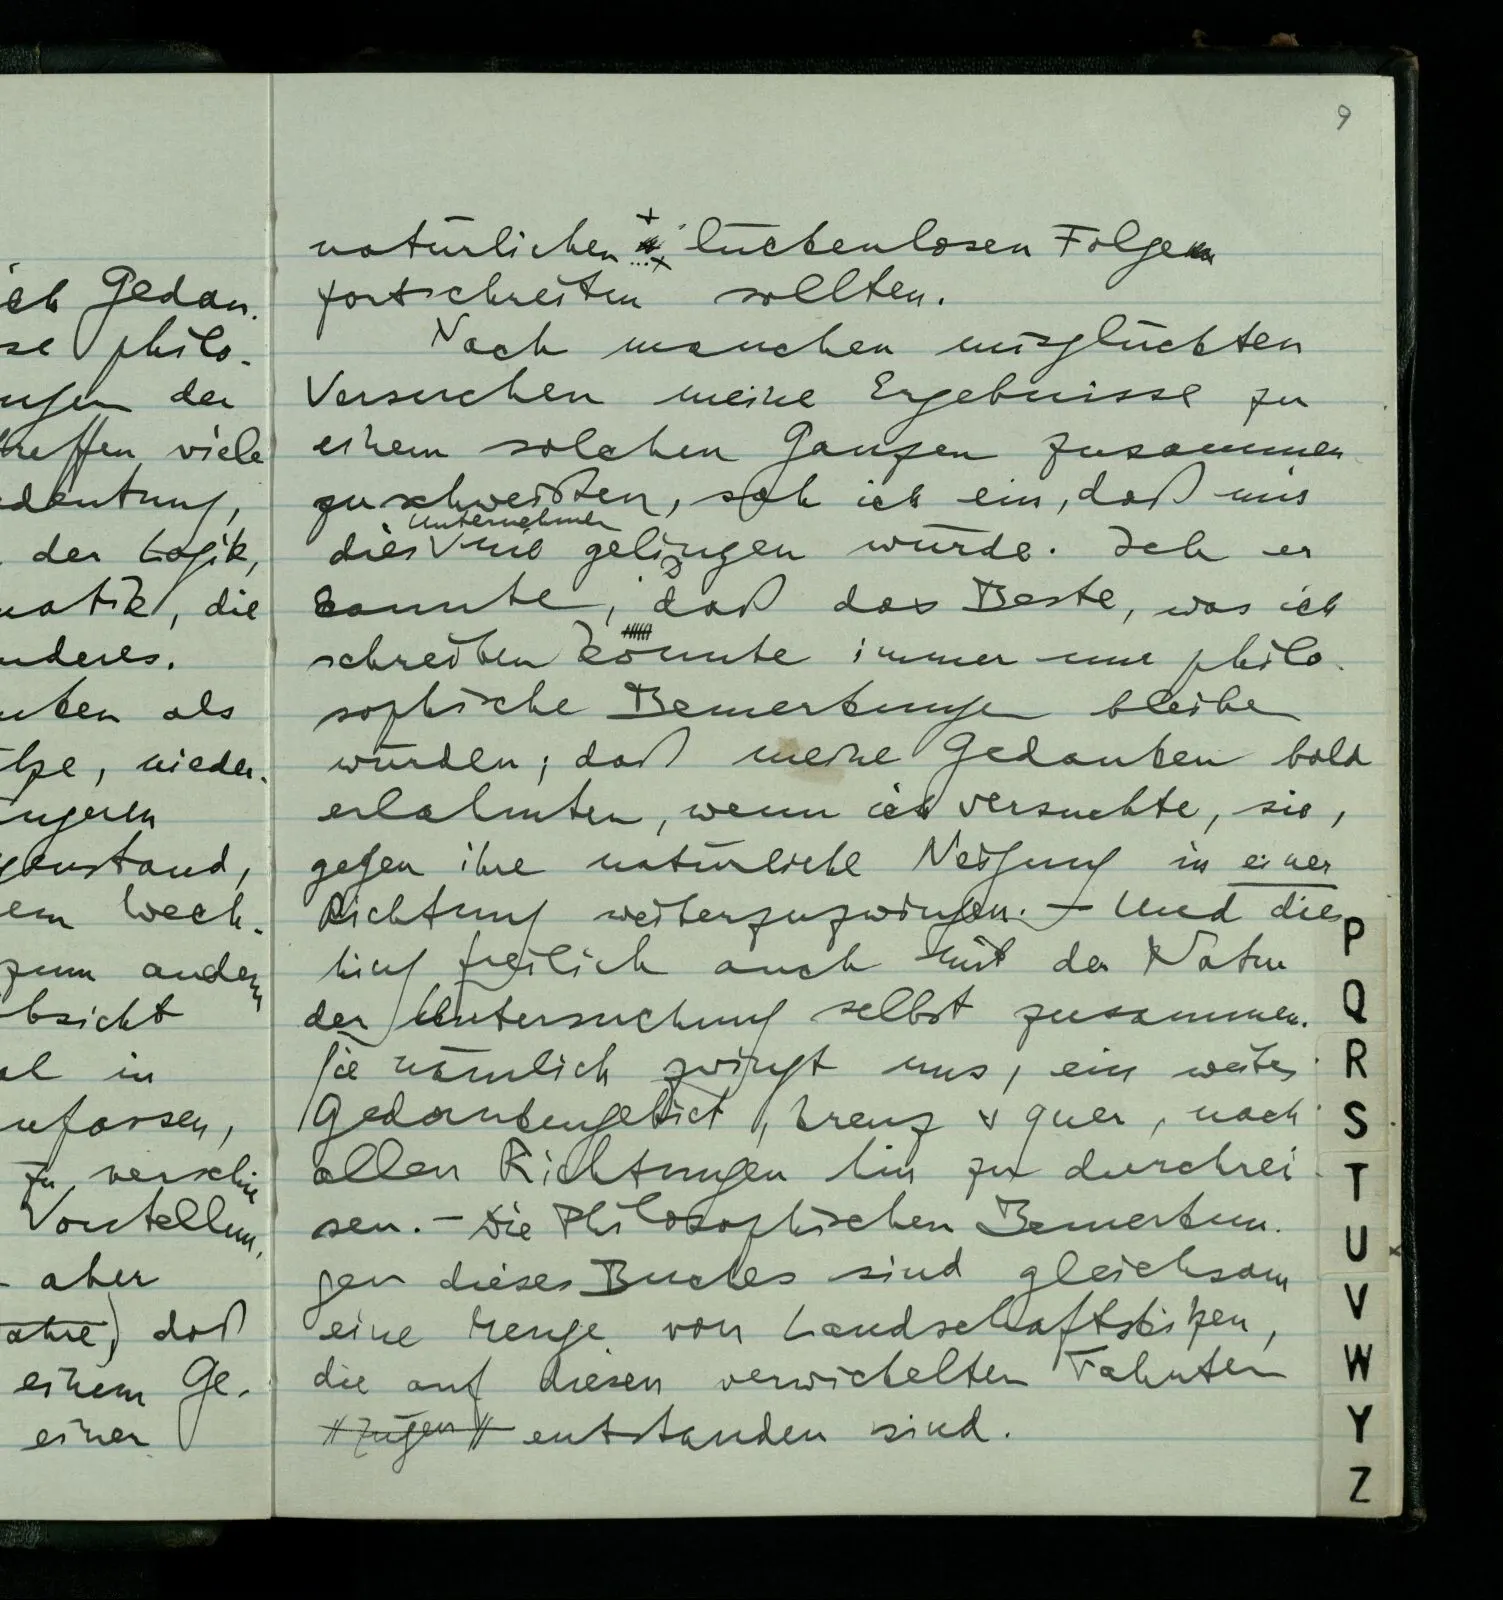 9
ich Gedan-
se philo-
ungen der
treffen viele
edeutung,
der Logik,
matik, die
nderes.
nken als
tze, nieder-
ängeren
genstand,
em Wech-
zum andern
bsicht
al in
nfassen,
zu verschie
Vorstellun-
aber
daß
einem Ge-
einer
natürlichen lückenlosen Folge
fortschreiten sollten.
Nach manchen misglückten
Versuchen meine Ergebnisse zu
einem solchen Ganzen zusammen
zuschweißen, sah ich ein, daß mir
Unternehmen
dies nie gelingen würde. Ich er
kannte, daß das Beste, was ich
schreiben konnte immer nur philo-
sophische Bemerkungen bleiben
würden; daß meine Gedanken bald
erlahmten, wenn ich versuchte, sie,
gegen ihre natürliche Neigung in einer
Richtung weiterzuzwingen. – Und dies
hing freilich auch mit der Natur
der Untersuchung selbst zusammen.
Sie nämlich zwingt uns, ein weites
Gedankengebiet, kreuz & quer, nach
allen Richtungen hin zu durchrei
sen. – Die Philosophischen Bemerkun-
gen dieses Buches sind gleichsam
eine Menge von Landschaftskizzen,
die auf diesen verwickelten Fahrten
// Zügen // entstanden sind.
P
Q
R
S
T
U
V
W
Y
Z